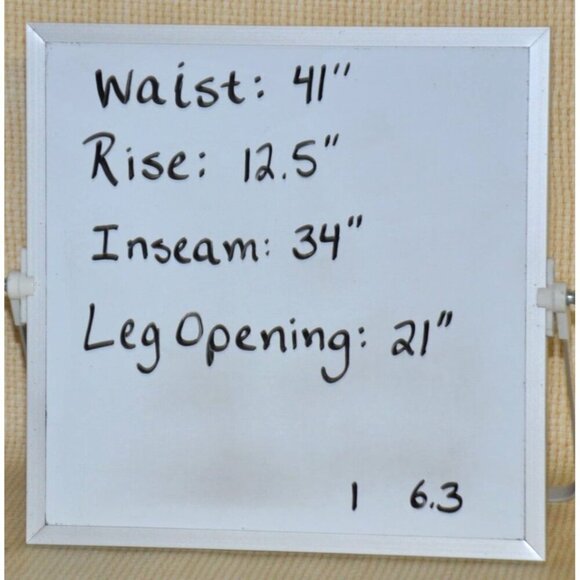 Waist: 41"
Rise: 12.5"
Inseam: 34"
Leg Opening: 21"
1 6.3